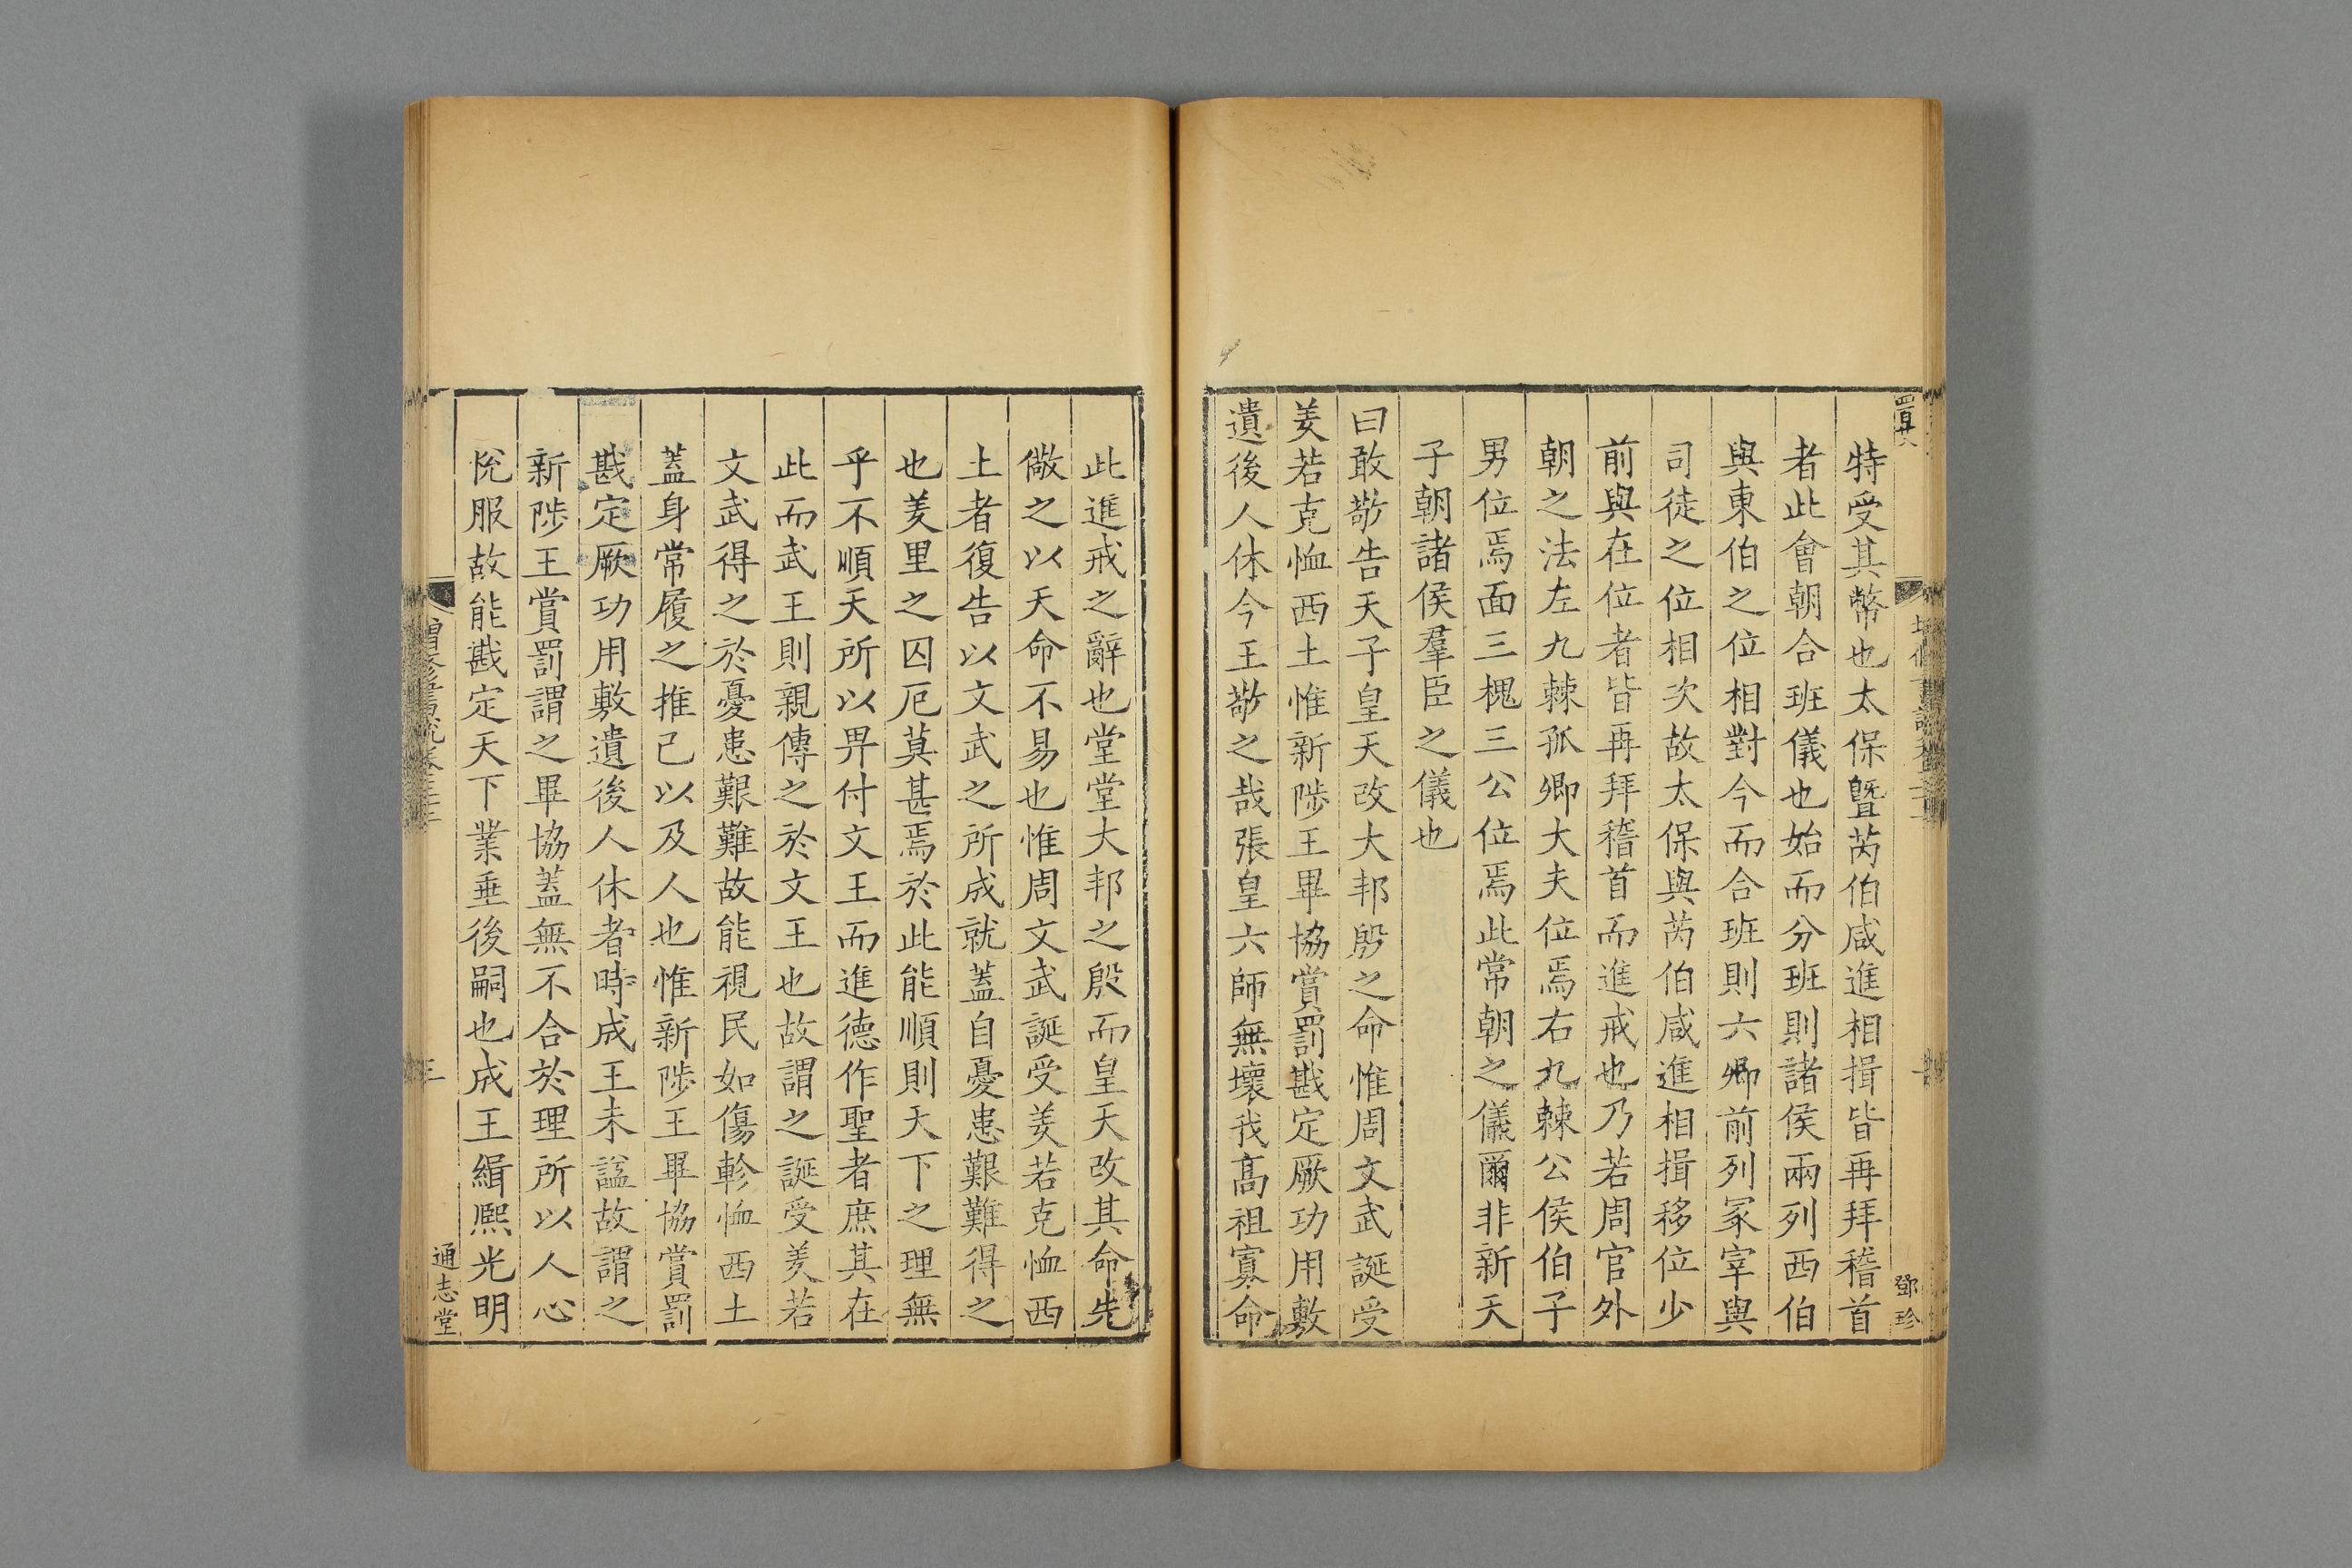 特受其幣也太保曁芮伯咸進相揖皆再拜稽首
者此會朝合班儀也始而分班則諸侯兩列西伯
與東伯之位相對今而合班則六卿前列冢宰與
司徒之位相次故太保與芮伯咸進相揖移位少
前與在位者皆再拜稽首而進戒也乃若周官外
朝之法左九棘孤卿大夫位焉右九棘公侯伯子
男位焉面三槐三公位焉此常朝之儀爾非新天
子朝諸侯羣臣之儀也
曰敢敬告天子皇天改大邦殷之命惟周文武誕受
羑若克恤西土惟新陟王畢協賞罰戡定厥功用敷
遺後人休今王敬之哉張皇六師無壞我高祖寡命
鄧珍
此進戒之辭也堂堂大邦之殷而皇天改其命先
儆之以天命不易也惟周文武誕受羑若克恤西
土者復告以文武之所成就蓋自憂患艱難得之
也羑里之囚厄莫甚焉於此能順則天下之理無
乎不順天所以畀付文王而進德作聖者庶其在
此而武王則親傳之於文王也故謂之誕受羑若
文武得之於憂患艱難故能視民如傷軫恤西土
蓋身常履之推己以及人也惟新陟王畢協賞罰
戡定厥功用敷遺後人休者時成王未諡故謂之
新陟王賞罰謂之畢協蓋無不合於理所以人心
悅服故能戡定天下業垂後嗣也成王緝熙光明
增修書說卷三十三
通志堂